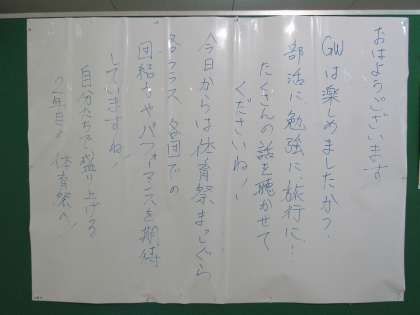 おはようございます
GWは楽しめましたか？
部活に勉強に旅行に…
たくさんの話を聴かせて
くださいね！
今日からは体育祭まっしぐら
各クラス 各団での
団結力やパフォーマンスを期待
していますね！
自分たちで盛り上げる
2年目の体育祭へ！